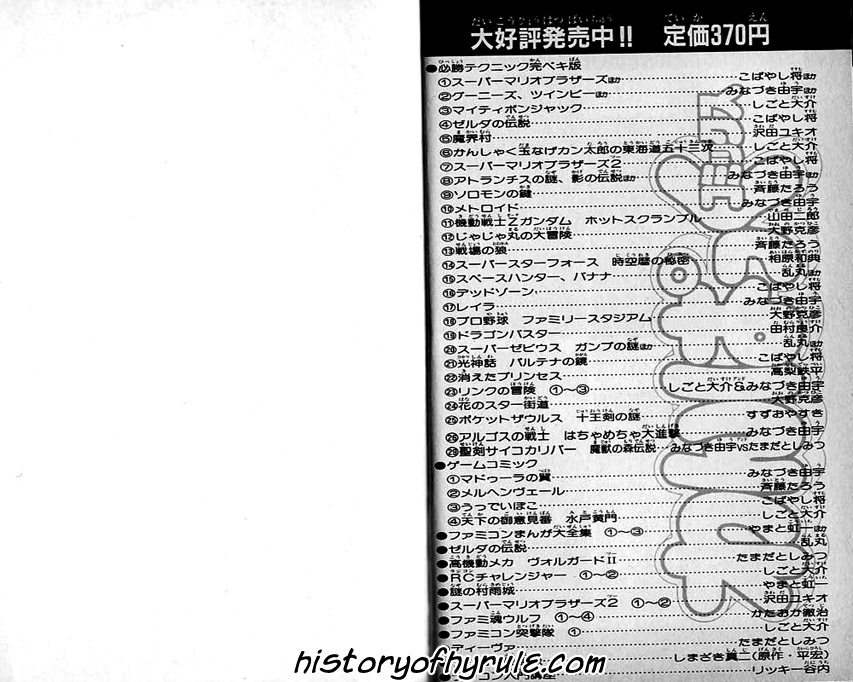 大好評発売中!! 定価370円
●必勝テクニック完ペキ版
①スーパーマリオブラザーズほか こばやし将ほか
②グーニーズ、ツインビーほか みなづき由宇ほか
③マイティボンジャック しごと大介
④ゼルダの伝説 こばやし将
⑤魔界村 沢田ユキオ
⑥かんしゃく玉なげカン太郎の東海道五十三次 しごと大介
⑦スーパーマリオブラザーズ2 こばやし将
⑧アトランチスの謎、影の伝説ほか みなづき由宇ほか
⑨ソロモンの鍵 斉藤たろう
⑩メトロイド みなづき由宇
⑪機動戦士Zガンダム ホットスクランブル 山田二郎
⑫じゃじゃ丸の大冒険 大野克彦
⑬戦場の狼 斉藤たろう
⑭スーパースターフォース 時空暦の秘密 相原和典
⑮スペースハンター、バナナ 乱丸ほか
⑯デッドゾーン こばやし将
⑰レイラ みなづき由宇
⑱プロ野球 ファミリースタジアム 大野克彦
⑲ドラゴンバスター 田村良介
⑳スーパーゼビウス ガンプの謎ほか 乱丸ほか
㉑光神話 パルテナの鏡 こばやし将
㉒消えたプリンセス 高梨鉄平
㉓リンクの冒険 ①～③ しごと大介&みなづき由宇
㉔花のスター街道 大野克彦
㉕ポケットザウルス 十王剣の謎 すずおやすき
㉖アルゴスの戦士 はちゃめちゃ大進撃 みなづき由宇
㉘聖剣サイコカリバー 魔獣の森伝説 みなづき由宇VSたまだとしみつ
●ゲームコミック
①マドゥーラの翼 みなづき由宇
②メルヘンヴェール 斉藤たろう
③うっでいぽこ こばやし将
④天下の御意見番 水戸黄門 しごと大介
●ファミコンまんが大全集 ①～③ やまと虹一ほか
●ゼルダの伝説 乱丸
●高機動メカ ヴォルガードⅡ たまだとしみつ
●RCチャレンジャー ①～② しごと大介
●謎の村雨城 やまと虹一
●スーパーマリオブラザーズ2 ①～② 沢田ユキオ
●ファミ魂ウルフ ①～④ かたおか徹治
●ファミコン突撃隊 ① しごと大介
ディーヴァ たまだとしみつ
しまざき真二(原作・平宏)
コン入門講座 リッキー谷内
historyofhyrule.com